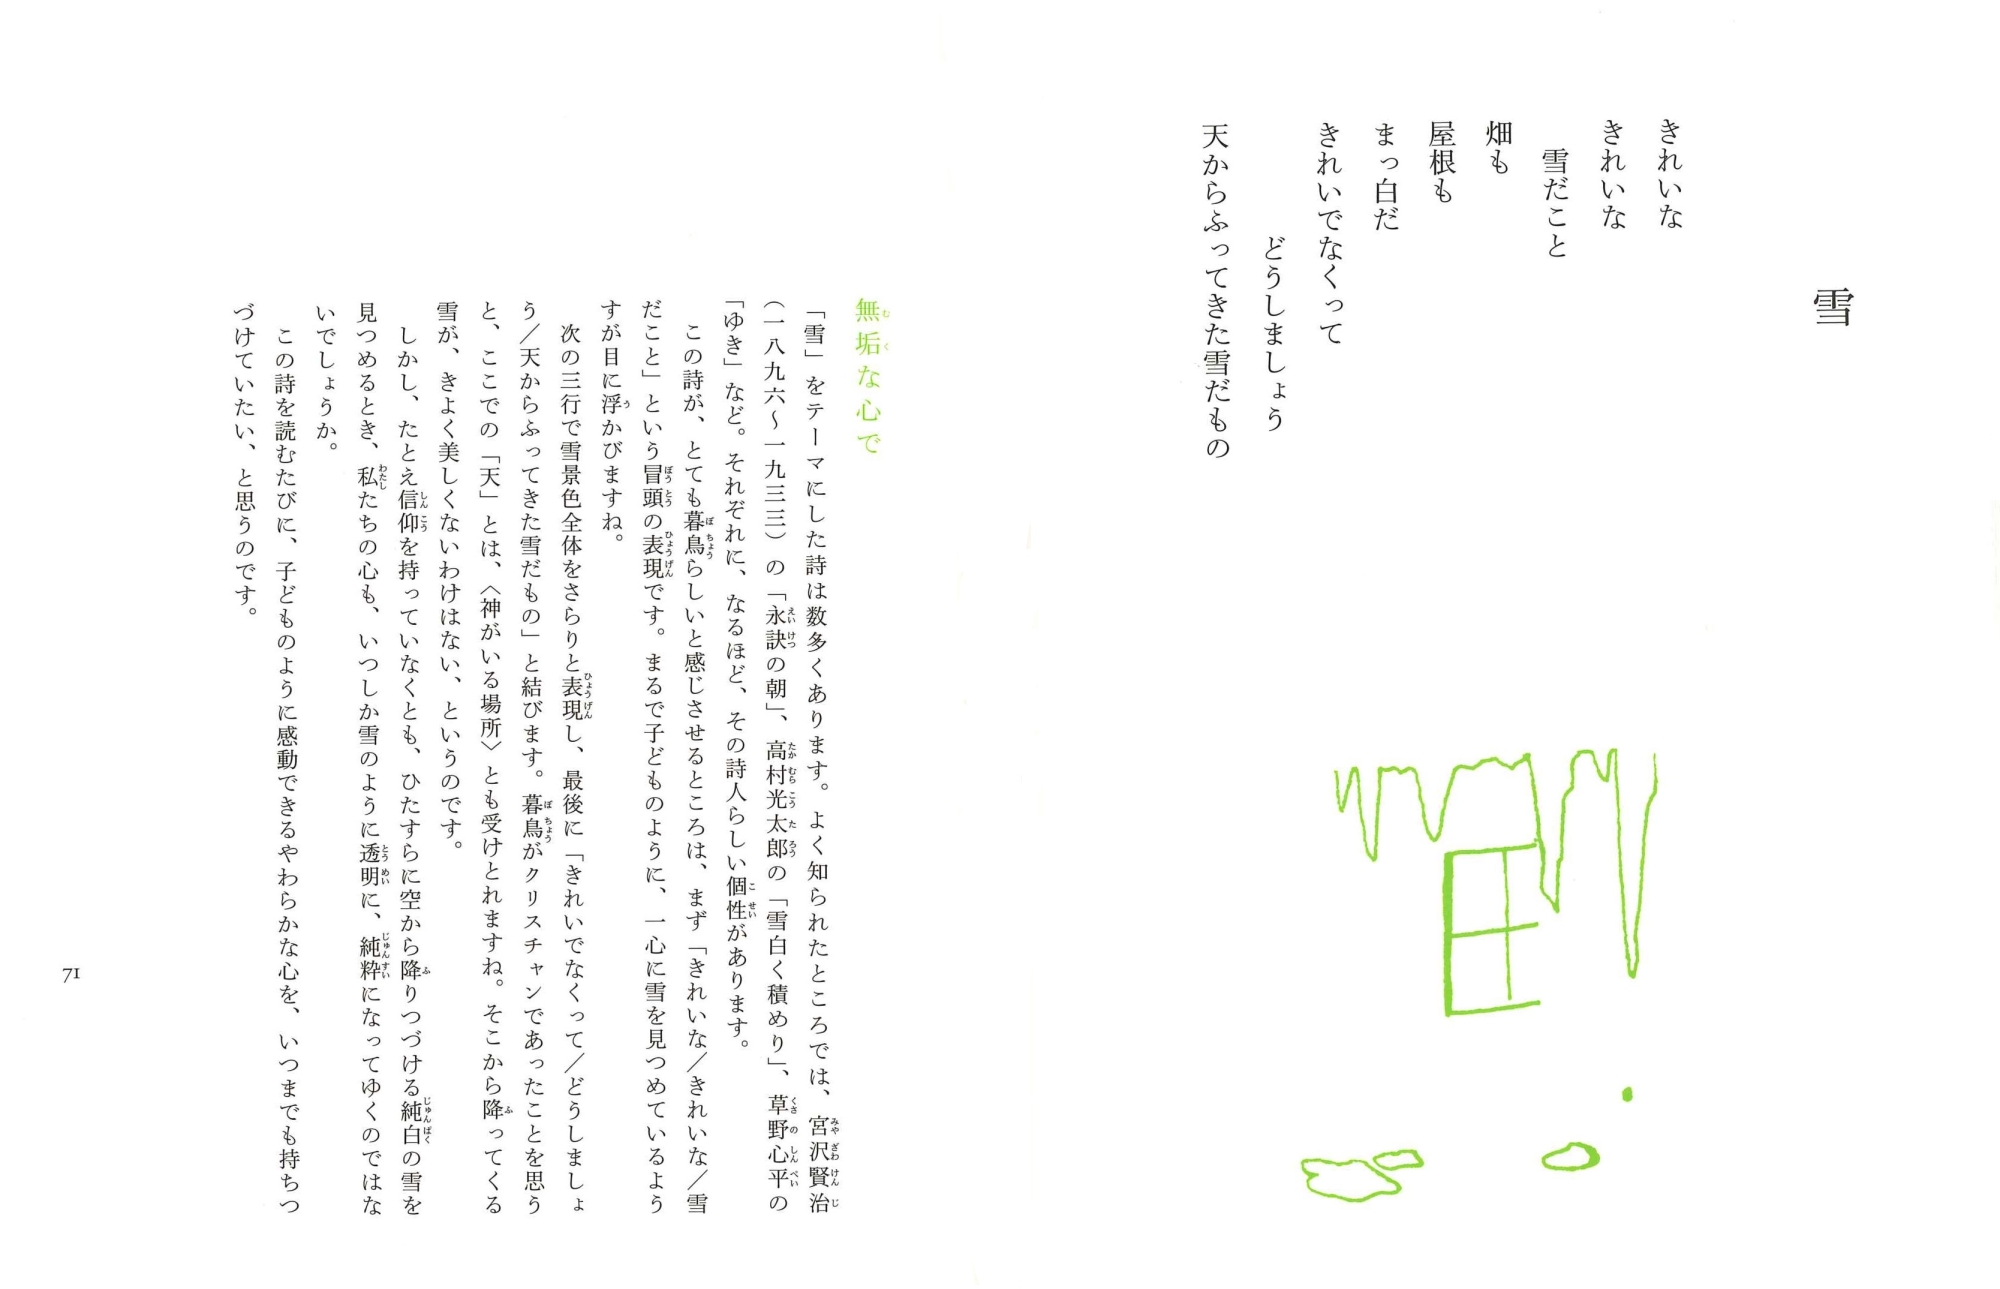 雪
きれいな
きれいな
雪だこと
畑も
屋根も
まっ白だ
きれいでなくって
どうしましょう
天からふってきた雪だもの
無垢な心で
「雪」をテーマにした詩は数多くあります。よく知られたところでは、宮沢賢治
（一八九六〜一九三三）の「永訣の朝」、高村光太郎の「雪白く積めり」、草野心平の
「ゆき」など。それぞれに、なるほど、その詩人らしい個性があります。
この詩が、とても暮鳥らしいと感じさせるところは、まず「きれいな／きれいな／雪
だこと」という冒頭の表現です。まるで子どものように、一心に雪を見つめているよう
すが目に浮かびますね。
次の三行で雪景色全体をさらりと表現し、最後に「きれいでなくって／どうしましょ
う／天からふってきた雪だもの」と結びます。暮鳥がクリスチャンであったことを思う
と、ここでの「天」とは、〈神がいる場所〉とも受けとれますね。そこから降ってくる
雪が、きよく美しくないわけはない、というのです。
しかし、たとえ信仰を持っていなくとも、ひたすらに空から降りつづける純白の雪を
見つめるとき、私たちの心も、いつしか雪のように透明に、純粋になってゆくのではな
いでしょうか。
この詩を読むたびに、子どものように感動できるやわらかな心を、いつまでも持ちつ
づけていたい、と思うのです。
71